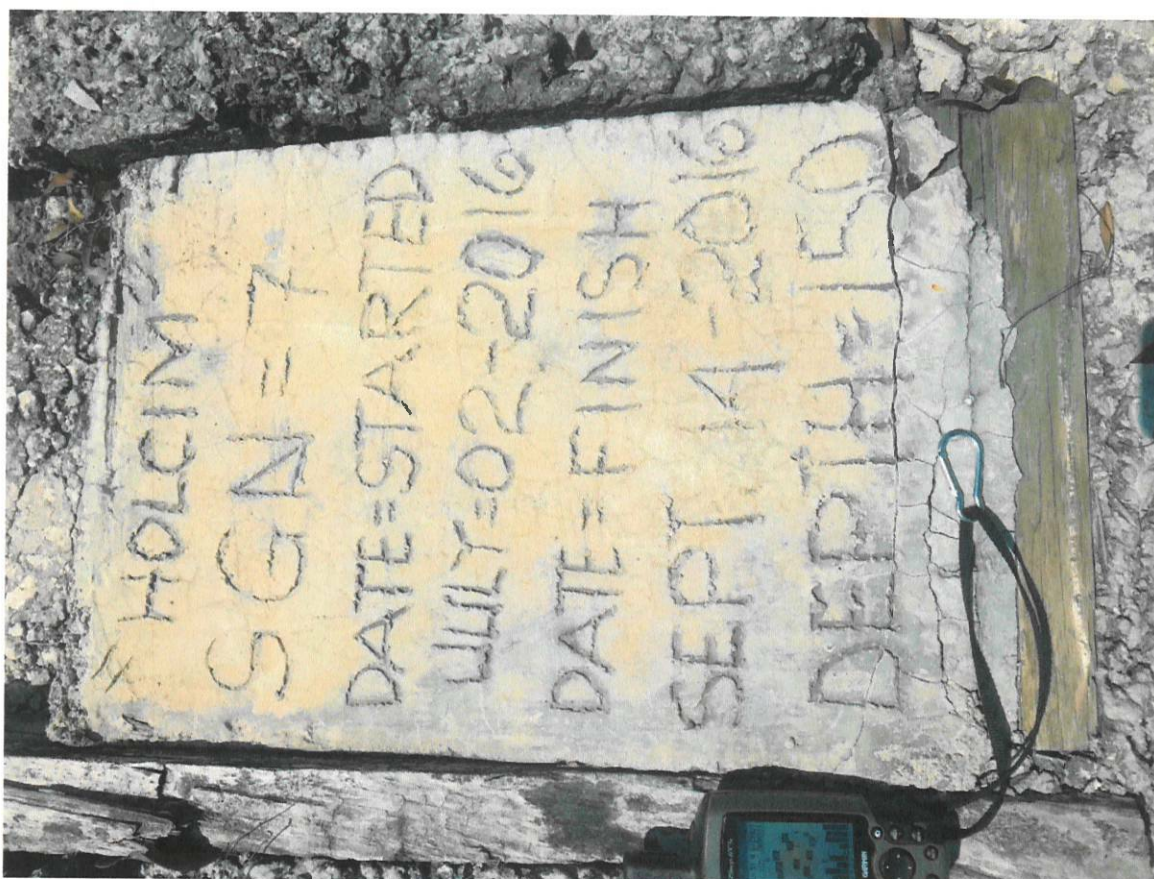 HOLCIM
SGN=7
DATE=STARTED
JULY=02-2016
DATE=FINISH
SEPT 14-2016
DEPTH=150
GARMIN